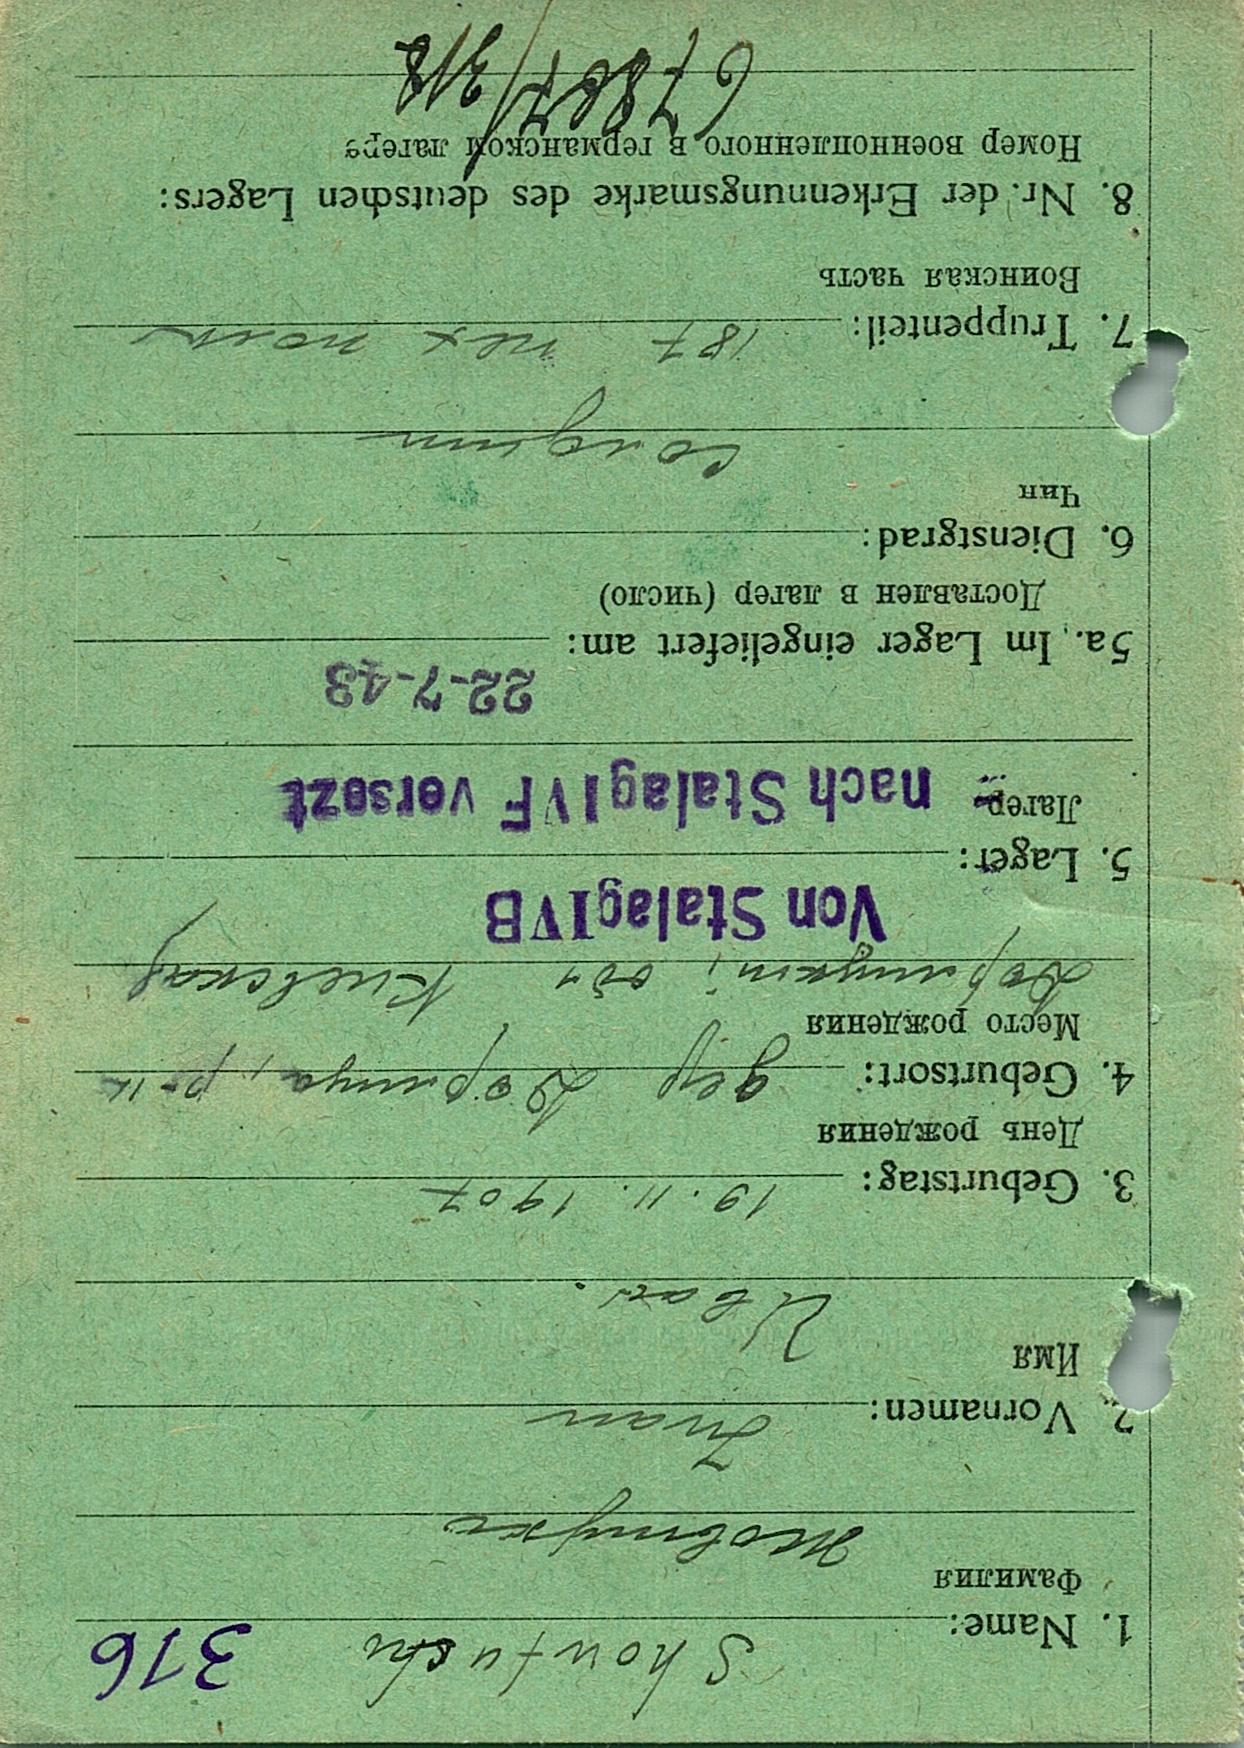 316
1. Name: Showtuchi
Фамилия
Жовтуха
2. Vornamen: Iwan
Имя
Иван.
3. Geburtstag: 19. 11. 1907
День рождения
4. Geburtsort: дер
Место рождения
обл Киевская
Von Stalag IVB
5. Lager:
Лагер
nach Stalag IVF versezt
22-7-43
5a. Im Lager eingeliefert am:
Доставлен в лагер (число)
6. Dienstgrad:
Чин
Солдат
7. Truppenteil: 187 пех полк
Воинская часть
8. Nr. der Erkennungsmarke des deutschen Lagers:
Номер военнопленного в германском лагере
67867/318